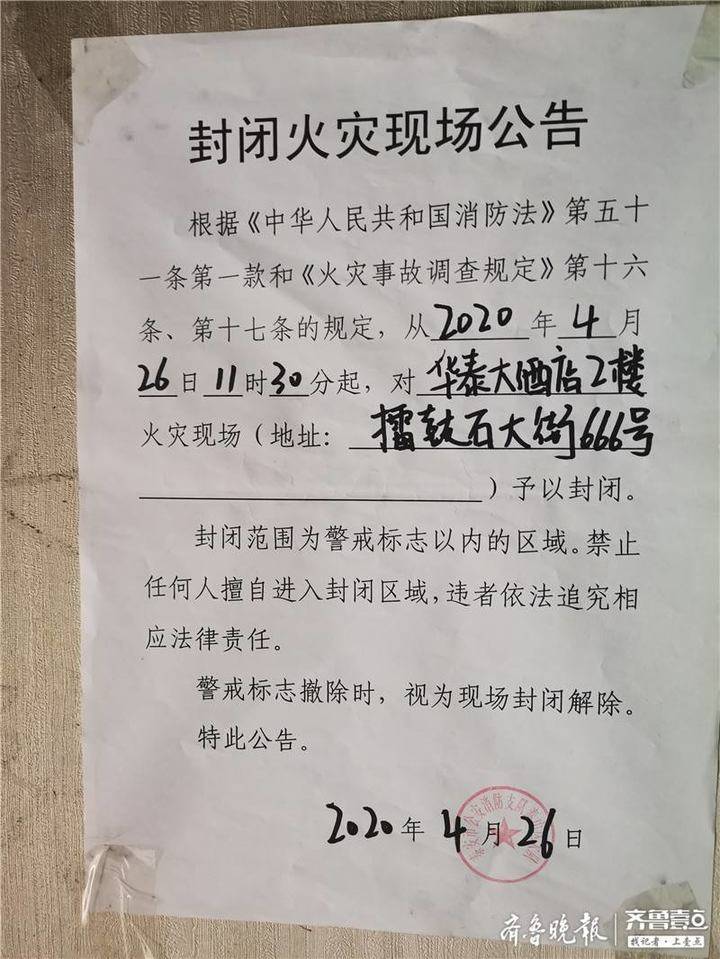 封闭火灾现场公告
根据《中华人民共和国消防法》第五十
一条第一款和《火灾事故调查规定》第十六
条、第十七条的规定，从2020年4月
26日11时30分起，对华泰大酒店2楼
火灾现场（地址：擂鼓石大街666号
）予以封闭。
封闭范围为警戒标志以内的区域。禁止
任何人擅自进入封闭区域，违者依法追究相
应法律责任。
警戒标志撤除时，视为现场封闭解除。
特此公告。
公安消防支队
2020年4月26日
齐鲁晚报
齐鲁壹点
找记者·上壹点